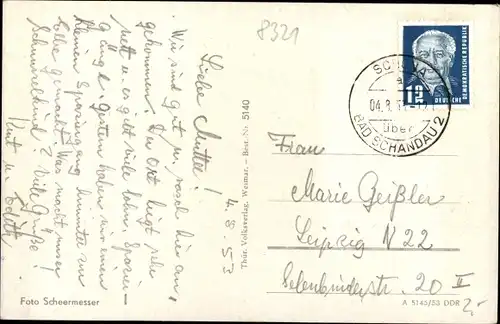 8321
Liebe Mutter!
4.8.53
Wir sind gut u. rasch hier an-
gekommen. Der Ort liegt sehr
nett u. es gibt viele Spazier-
gänge. Gestern haben wir einen
kleinen Spaziergang
gemacht. Was macht unser
? Viele Grüße!
Kurt u. Edith.
Foto Scheermesser
Thür. Volksverlag, Weimar - Best.-Nr. 5140
DEUTSCHE DEMOKRATISCHE REPUBLIK
12
über
BAD SCHANDAU 2
Frau
Marie Geißler
Leipzig N 22
20 II
A 5145/53 DDR
2,-